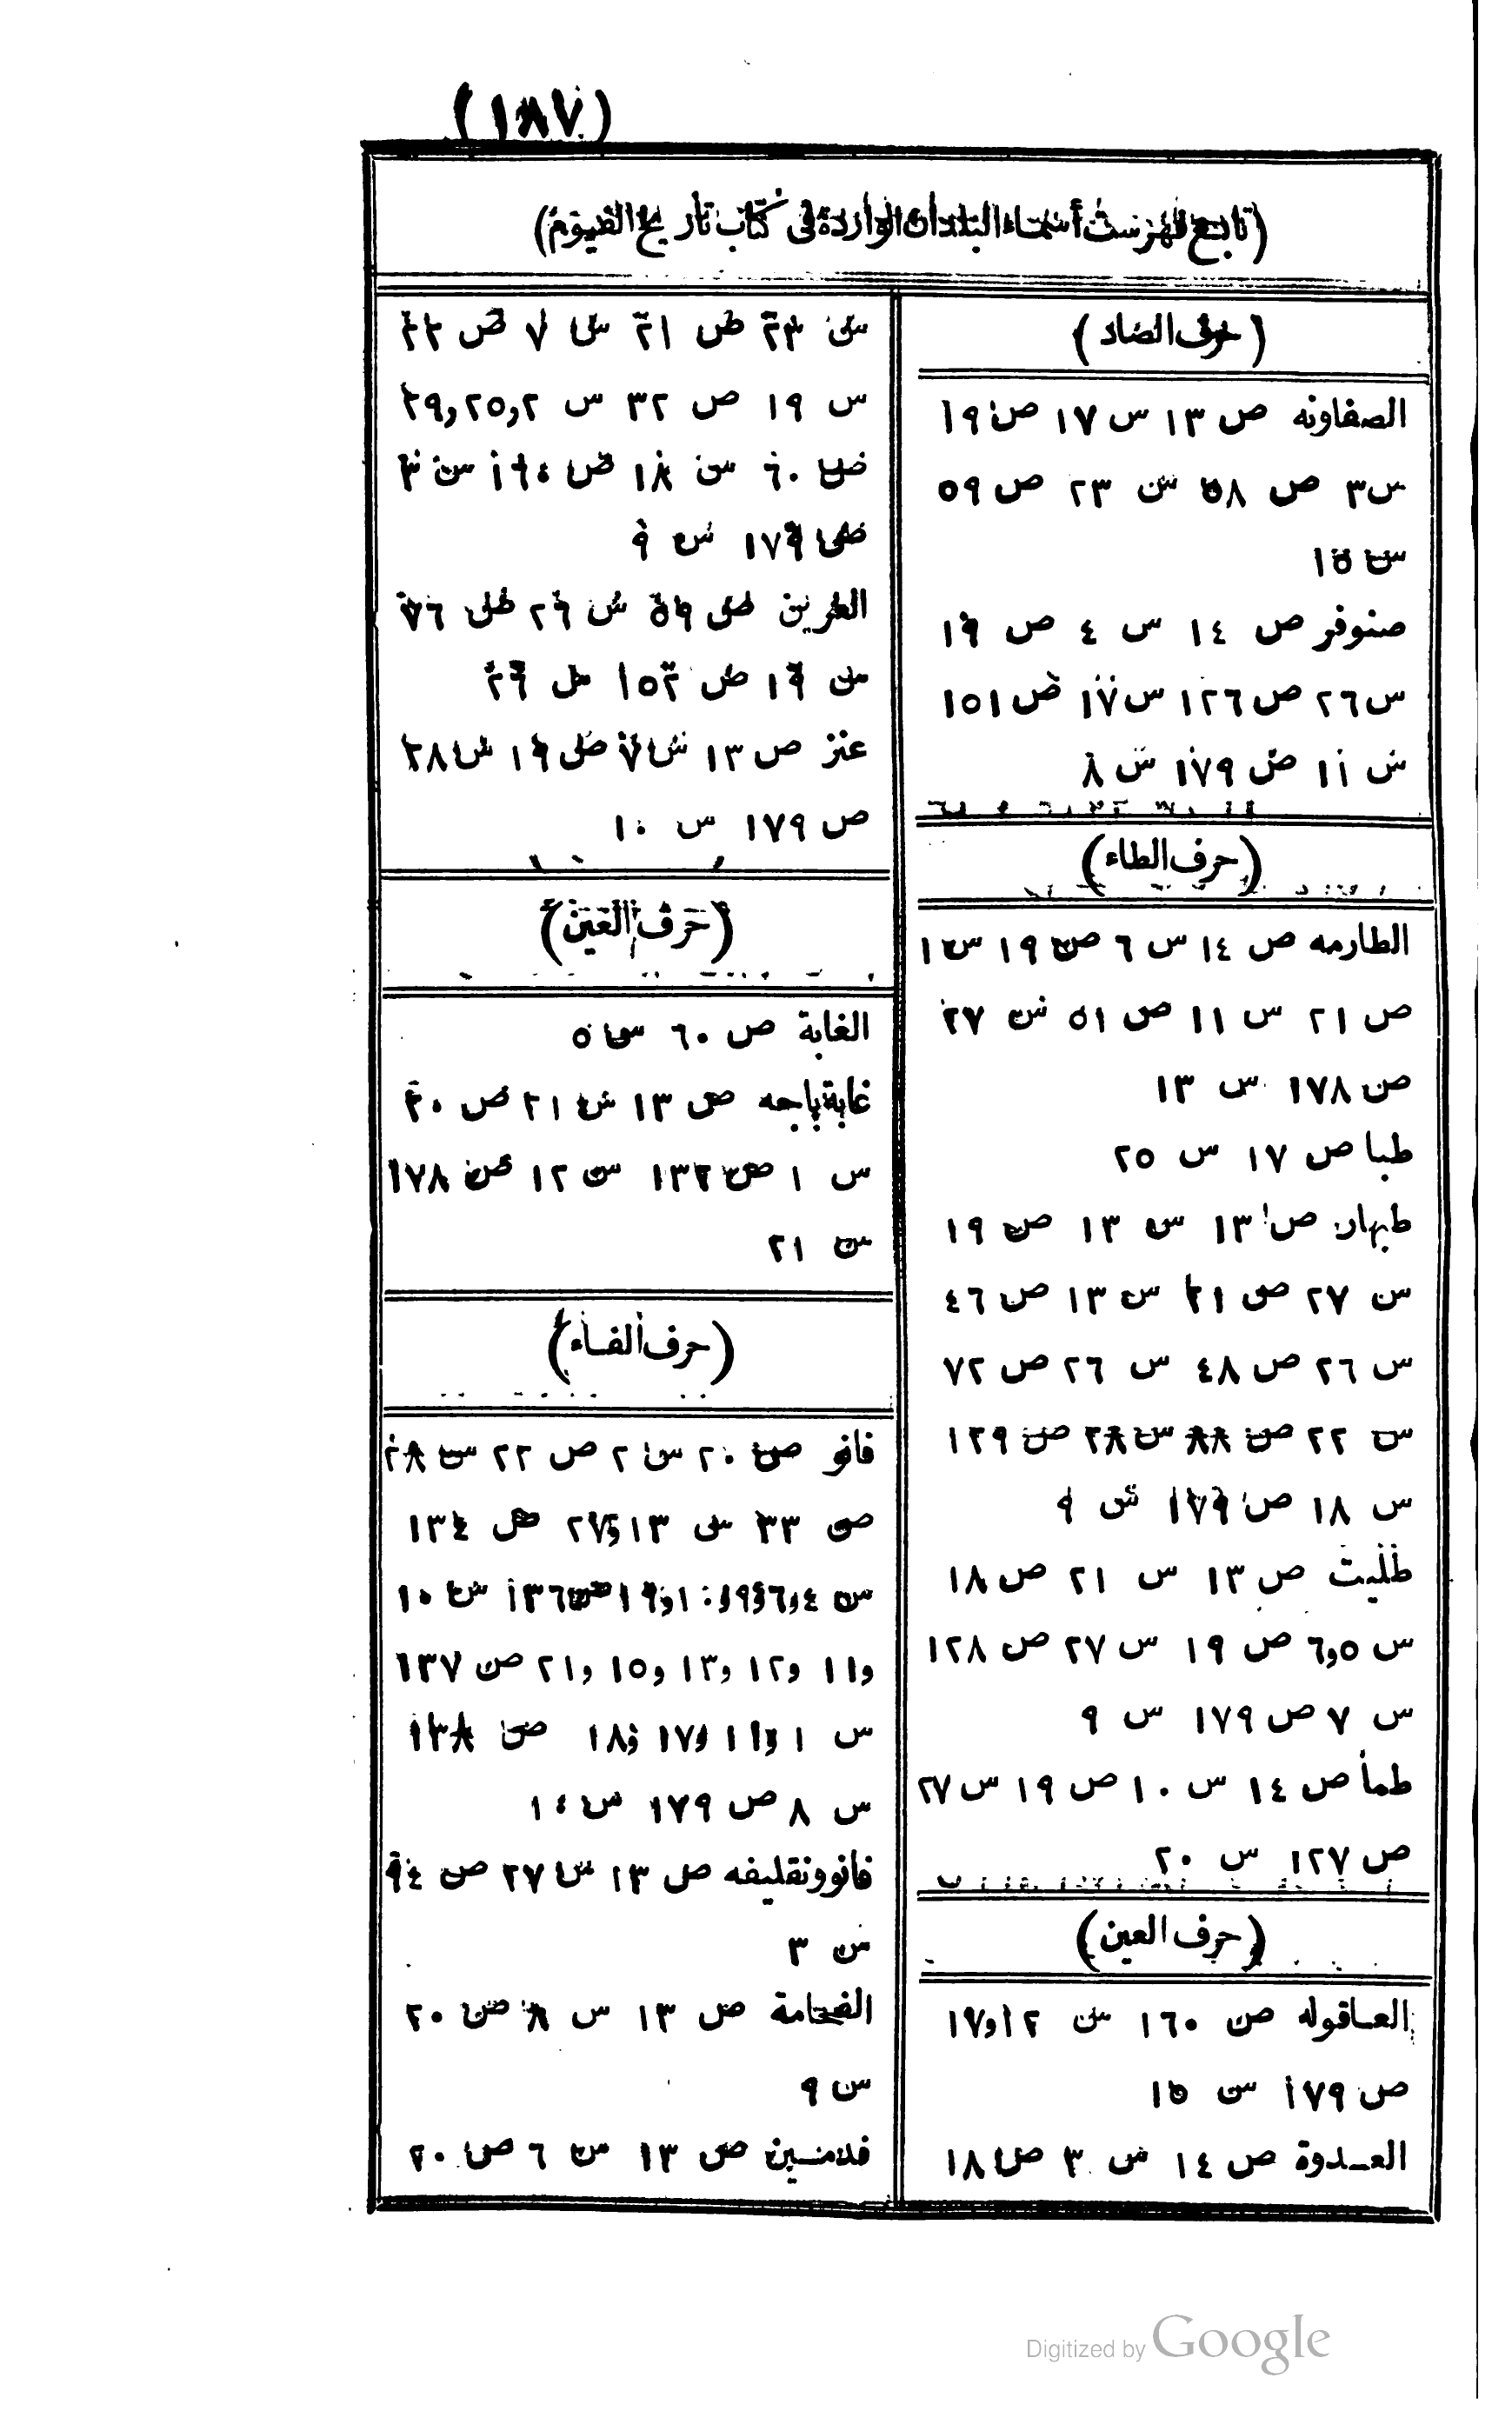 (١٨٧)
(تابع فهرست أسماء البلدان الواردة فى كتاب تاريخ الفيوم)
(حرف الصاد)
الصفاونه ص ١٣ س ١٧ ص ١٩
س ٣ ص ٥٨ س ٢٣ ص ٥٩
س ١٥
صنوفر ص ١٤ س ٤ ص ١٩
س ٢٦ ص ١٢٦ س ١٧ ص ١٥١
س ١١ ص ١٧٩ س ٨
(حرف الطاء)
الطارمه ص ١٤ س ٦ ص ١٩ س ١
ص ٢١ س ١١ ص ٥١ س ٢٧
ص ١٧٨ س ١٣
طبا ص ١٧ س ٢٥
طبهار ص ١٣ س ١٣ ص ١٩
س ٢٧ ص ٢١ س ١٣ ص ٤٦
س ٢٦ ص ٤٨ س ٢٦ ص ٧٢
س ٢٢ ص ٨٨ س ٢٨ ص ١٢٩
س ١٨ ص ١٧٩ س ٩
طلليت ص ١٣ س ٢١ ص ١٨
س ٥و٦ ص ١٩ س ٢٧ ص ١٢٨
س ٧ ص ١٧٩ س ٩
طما ص ١٤ س ١٠ ص ١٩ س ٢٧
ص ١٢٧ س ٢٠
(حرف العين)
العاقوله ص ١٦٠ س ١٢و١٧
ص ١٧٩ س ١٥
العدوة ص ١٤ س ٣ ص ١٨
س ٢٣ ص ٢١ س ٧ ص ٢٢
س ١٩ ص ٣٢ س ٢و٢٥و٢٩
ص ٦٠ س ١٨ ص ١٦٠ س ٣
ص ١٧٩ س ٩
العرين ص ٥٩ س ٢٦ ص ٧٦
س ١٩ ص ١٥٢ س ٢٦
عنز ص ١٣ س ٧ ص ١٩ س ٢٨
ص ١٧٩ س ١٠
(حرف الغين)
الغابة ص ٦٠ س ٥
غابة باجه ص ١٣ س ٢١ ص ٢٠
س ١ ص ١٣٢ س ١٢ ص ١٧٨
س ٢١
(حرف الفاء)
فانو ص ٢٠ س ٢ ص ٢٢ س ٢٨
ص ٣٣ س ١٣و٢٧ ص ١٣٤
س ٤و٦و٩و١٠و١٩ ص ١٣٦ س ١٠
و١١ و١٢ و١٣ و١٥ و٢١ ص ١٣٧
س ١ و١١ و١٧ و١٨ ص ١٣٨
س ٨ ص ١٧٩ س ١٠
فانو ونقليفه ص ١٣ س ٢٧ ص ٩٤
س ٣
الفحامة ص ١٣ س ٨ ص ٢٠
س ٩
فدمنين ص ١٣ س ٦ ص ٢٠
Digitized by Google